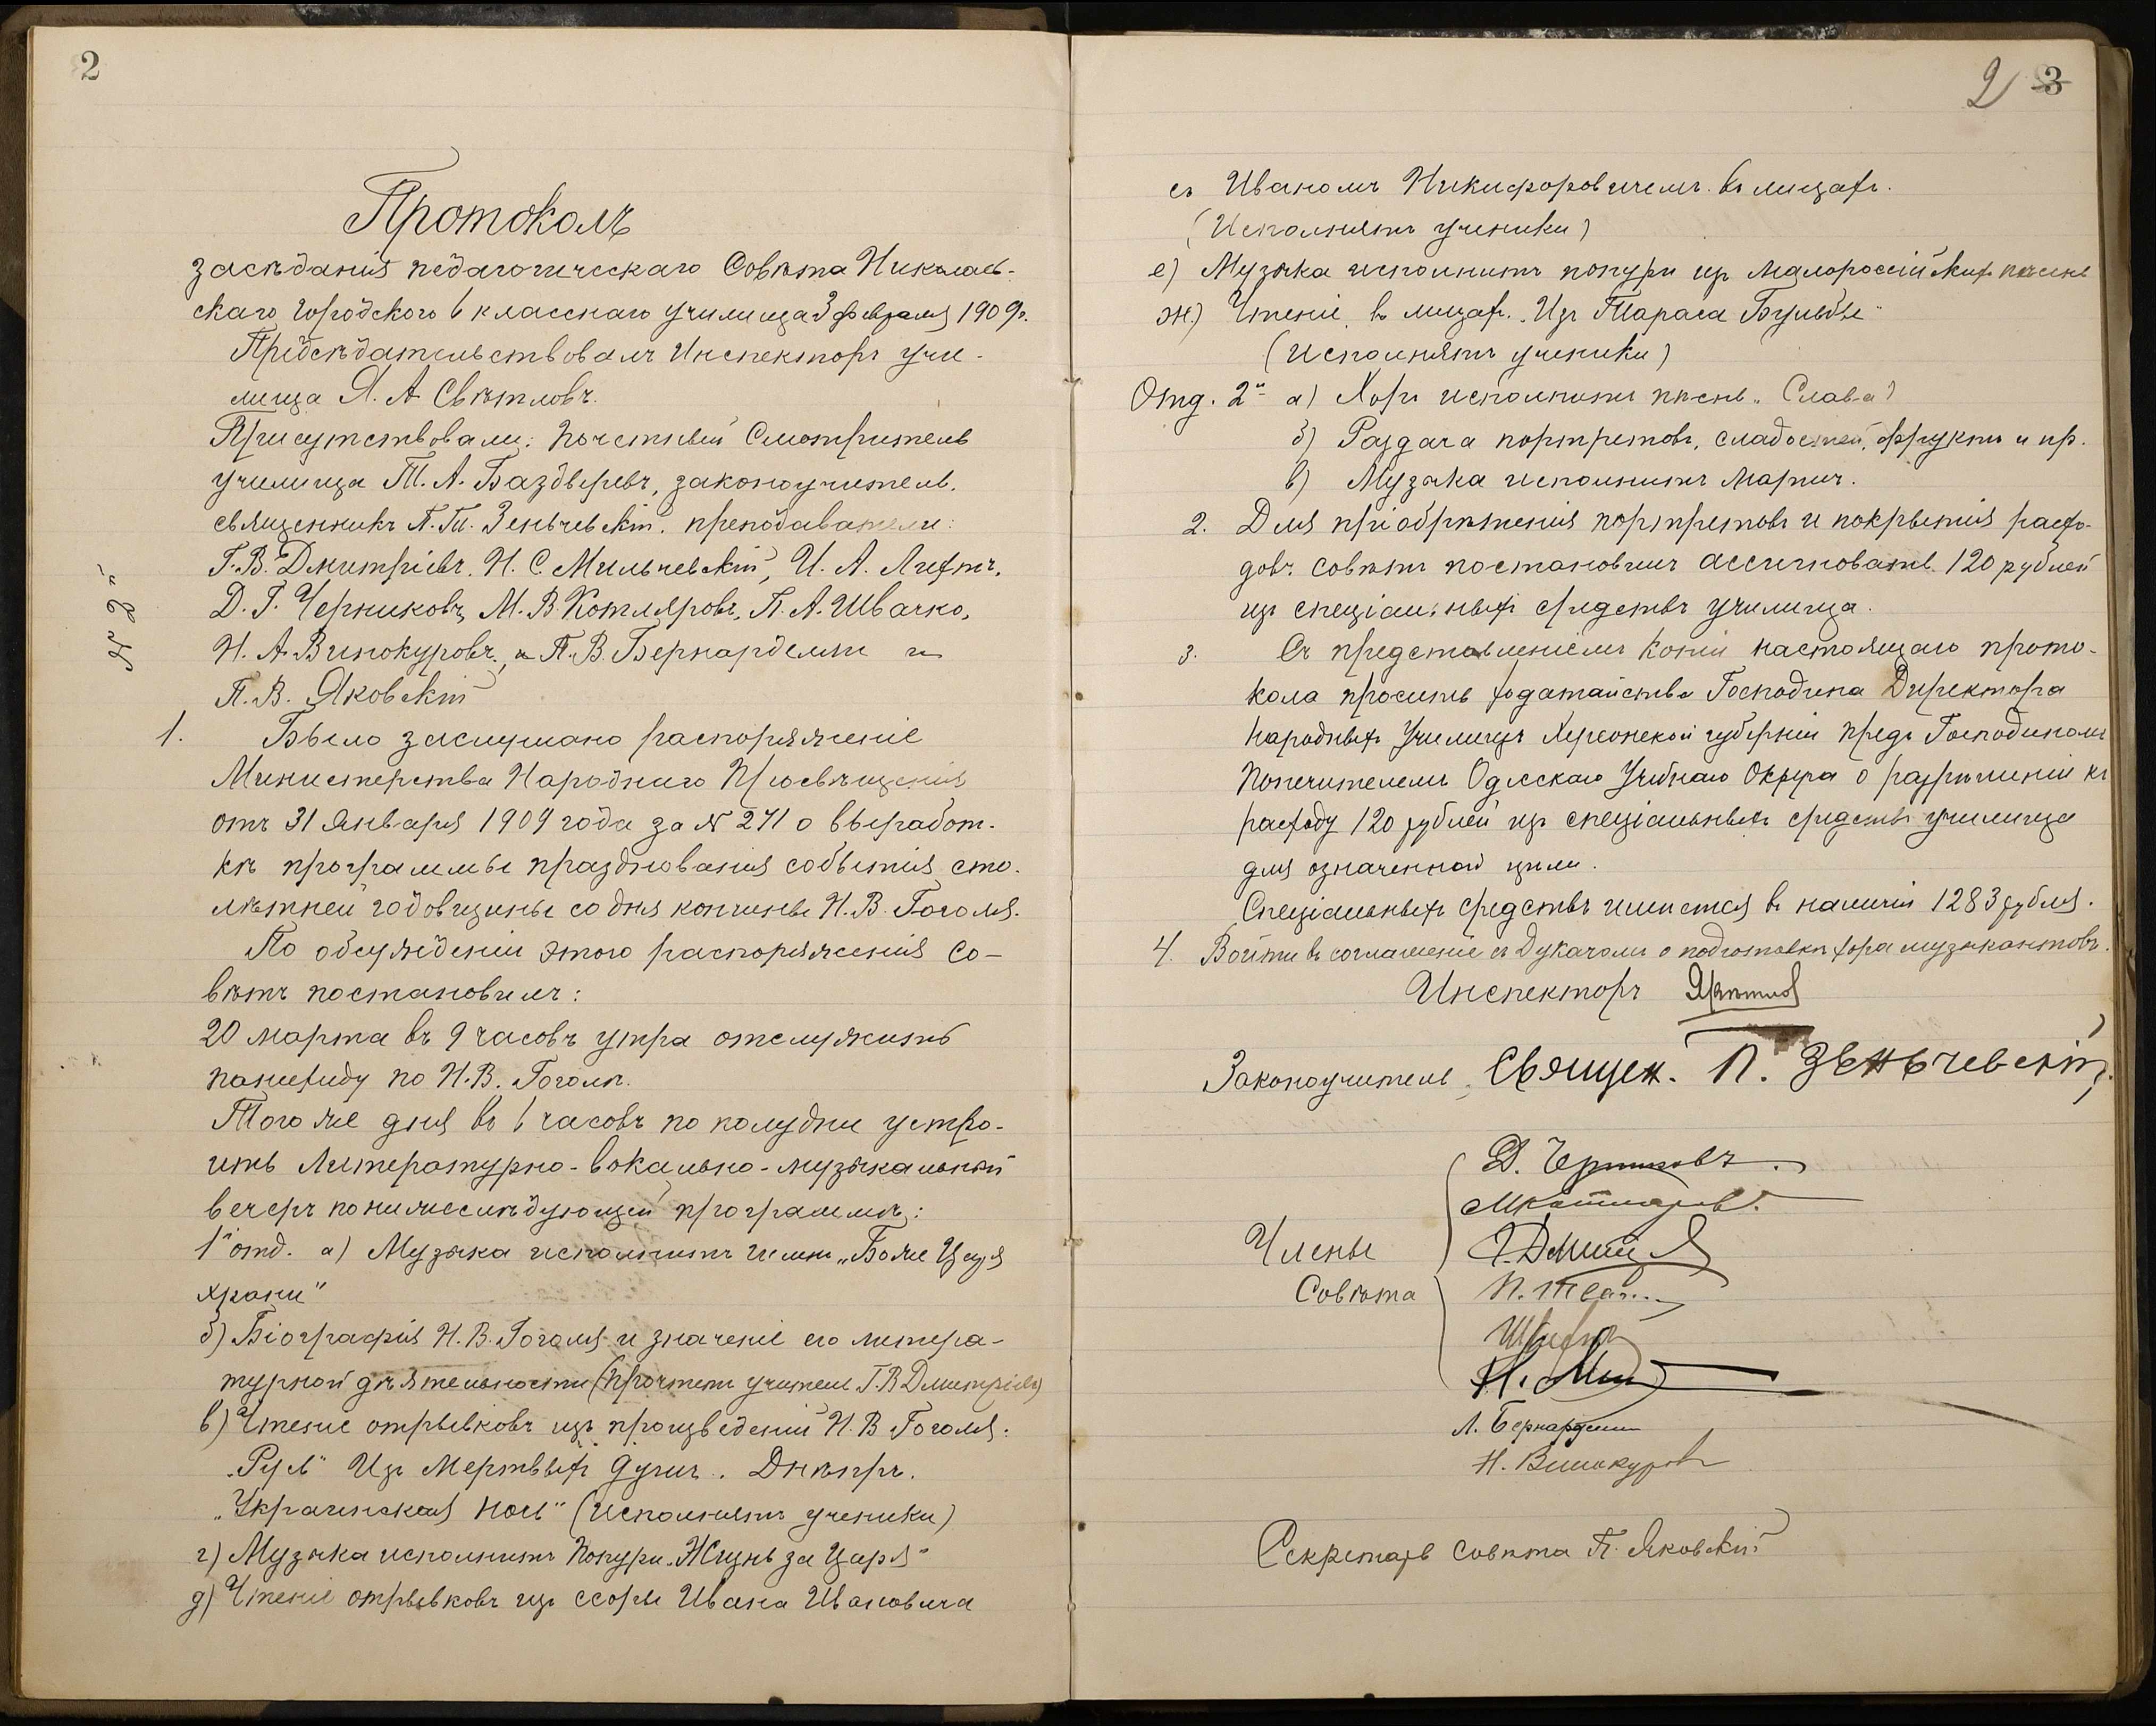 2
Протоколъ
засѣданія педагогическаго Совѣта Николаев-
скаго городского 6 класснаго училища 3 февраля 1909 г.
Предсѣдательствовалъ Инспекторъ учи-
лища Я. А. Свѣтловъ.
Присутствовали: Почетный Смотритель
училища Т. А. Баздыревъ, законоучитель,
священникъ П. Зеньчевскій, преподаватели:
Г. В. Дмитріевъ, Н. С. Мильчевскій, И. А. Лифтъ,
Д. Г. Черниковъ, М. В. Котляровъ, П. А. Швачко,
Н. А. Винокуровъ, и П. В. Бернарделли и
П. В. Яковскій
№ 2й
1. Было заслушано распоряженіе
Министерства Народнаго Просвѣщенія
отъ 31 Января 1909 года за № 271 о выработ-
кѣ программы празднованія событія сто-
лѣтней годовщины со дня кончины Н. В. Гоголя.
По обсужденіи этого распоряженія Со-
вѣтъ постановилъ:
20 марта въ 9 часовъ утра отслужить
панихиду по Н. В. Гоголѣ.
Того же дня въ 6 часовъ по полудни устро-
ить Литературно-вокально-музыкальный
вечеръ по нижеслѣдующей программѣ:
1й отд. а) Музыка исполнитъ гимнъ „Боже Царя
храни"
б) Біографія Н. В. Гоголя и значеніе его литера-
турной дѣятельности (Прочтетъ учитель Г. В Дмитріевъ)
в) Чтеніе отрывковъ изъ произведеній Н. В Гоголя.
„Русь" Изъ Мертвыхъ душъ. Днѣпръ.
„Украинская ночь" (исполнятъ ученики)
г) Музыка исполнитъ Попури „Жизнь за Царя"
д) Чтеніе отрывковъ изъ ссоры Ивана Ивановича
2 3
съ Иваномъ Никифоровичемъ. въ лицахъ.
(Исполнятъ ученики)
е) Музыка исполнитъ попури изъ Малороссійскихъ пѣсень
ж) Чтеніе въ лицахъ. „Изъ Тараса Бульбы"
(Исполнятъ ученики)
Отд. 2й а) Хоръ исполнитъ пѣснь „Слава"
б) Раздача портретовъ, сладостей, фруктъ и пр.
в) Музыка исполнитъ Маршъ.
2. Для пріобрѣтенія портретовъ и покрытія расхо-
довъ совѣтъ постановилъ ассигновать 120 рублей
изъ спеціальныхъ средствъ училища.
3. Съ представленіемъ копіи настоящаго прото-
кола просить ходатайства Господина Директора
Народныхъ Училищъ Херсонской губерніи предъ Господиномъ
Попечителемъ Одесскаго Учебнаго Округа о разрѣшеніи къ
расходу 120 рублей изъ спеціальныхъ средствъ училища
для означенной цѣли.
Спеціальныхъ средствъ имѣется въ наличіи 1283 рубля.
4. Войти въ соглашеніе съ Дукачомъ о подготовкѣ хора музыкантовъ.
Инспекторъ ЯСвѣтлов
Законоучитель, Священ. П. Зеньчевскій
Д. Черниковъ
МКотляровъ
Члены
Совѣта
Л. Бернарделли
Н. Винокуровъ
Секретарь Совѣта П. Яковскій